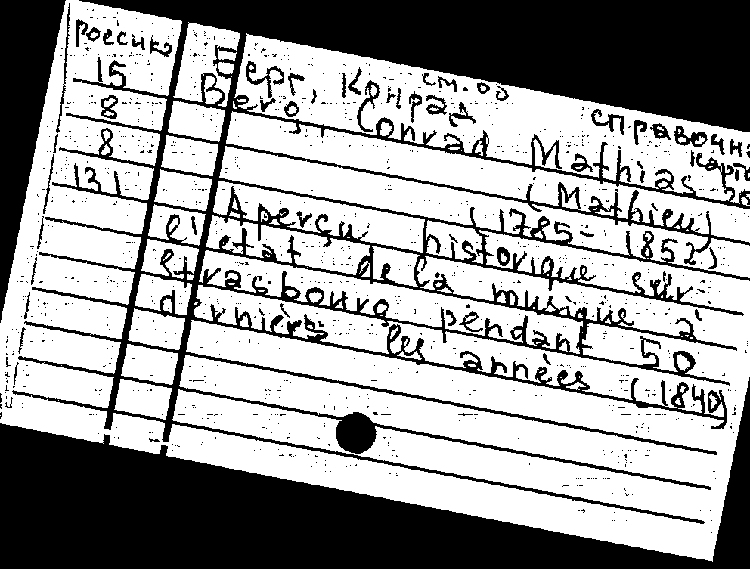 россика
15
8
8
131
см. об
Берг, Конрад
справочн
карто
Berg, Conrad Mathias
(Mathieu)
(1785-1852)
Aperçu historique sur
l'etat de la musique à
Strasbourg pendant 50
dernières les années (1840)